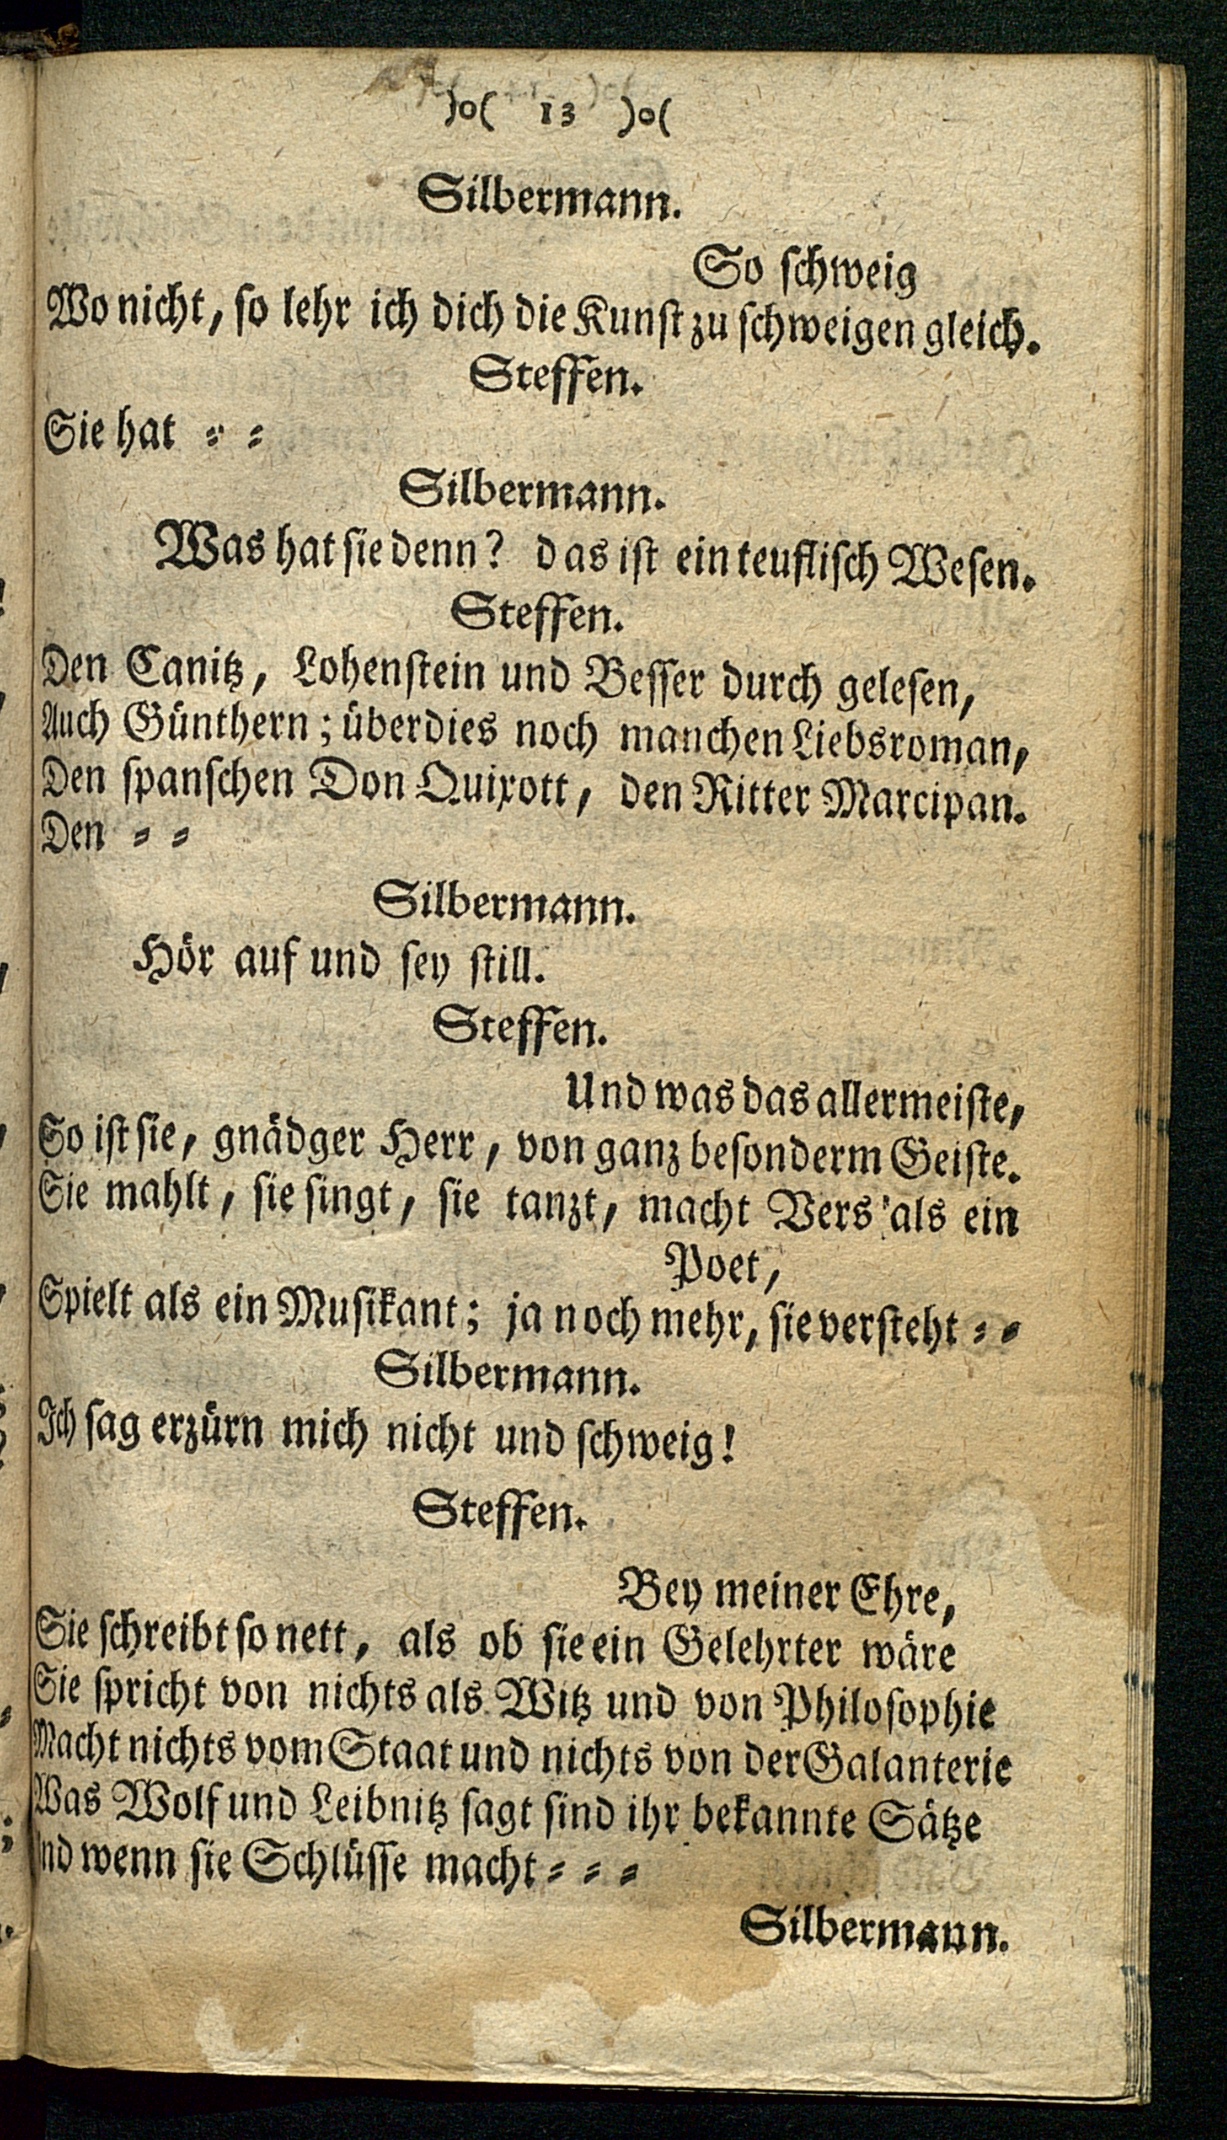 )o( 13 )o(
Silbermann.
So schweig
Wo nicht, so lehr ich dich die Kunst zu schweigen gleich.
Steffen.
Sie hat = =
Silbermann.
Was hat sie denn? das ist ein teuflisch Wesen.
Steffen.
Den Canitz, Lohenstein und Besser durch gelesen,
Auch Günthern; überdies noch manchen Liebsroman,
Den spanschen Don Quixott, den Ritter Marcipan.
Den = =
Silbermann.
Hör auf und sey still.
Steffen.
Und was das allermeiste,
So ist sie, gnädger Herr, von ganz besonderm Geiste.
Sie mahlt, sie singt, sie tanzt, macht Vers' als ein
Poet,
Spielt als ein Musikant; ja noch mehr, sie versteht = =
Silbermann.
Ich sag erzürn mich nicht und schweig!
Steffen.
Bey meiner Ehre,
Sie schreibt so nett, als ob sie ein Gelehrter wäre
Sie spricht von nichts als Witz und von Philosophie
Macht nichts vom Staat und nichts von der Galanterie
Was Wolf und Leibnitz sagt sind ihr bekannte Sätze
Und wenn sie Schlüsse macht = = =
Silbermann.